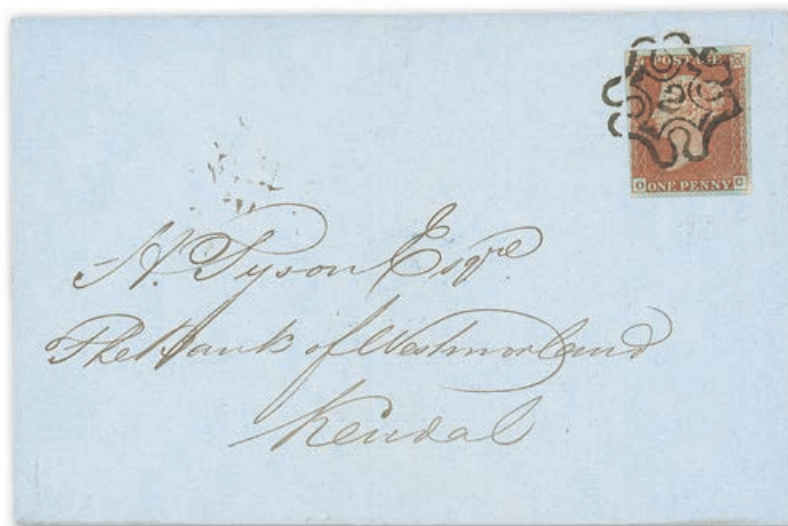 POSTAGE
O ONE PENNY C
N. Tyson Esqre
The Bank of Westmorland
Kendal